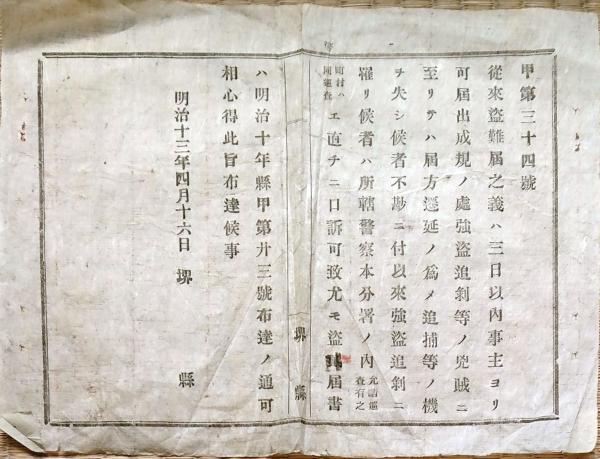 甲第三十四號
從來盜難屆之義ハ三日以內事主ヨリ
可屆出成規ノ處強盜追剝等ノ兇賊ニ
至リテハ屆方遷延ノ爲メ追捕等ノ機
ヲ失シ候者不尠ニ付以來強盜追剝ニ
罹リ候者ハ所轄警察本分署ノ內
査有之
町村ハ
エ直チニ口訴可致尤モ盜
屆書
ハ明治十年縣甲第廿三號布達ノ通可
相心得此旨布達候事
明治十三年四月十六日 堺縣
堺縣